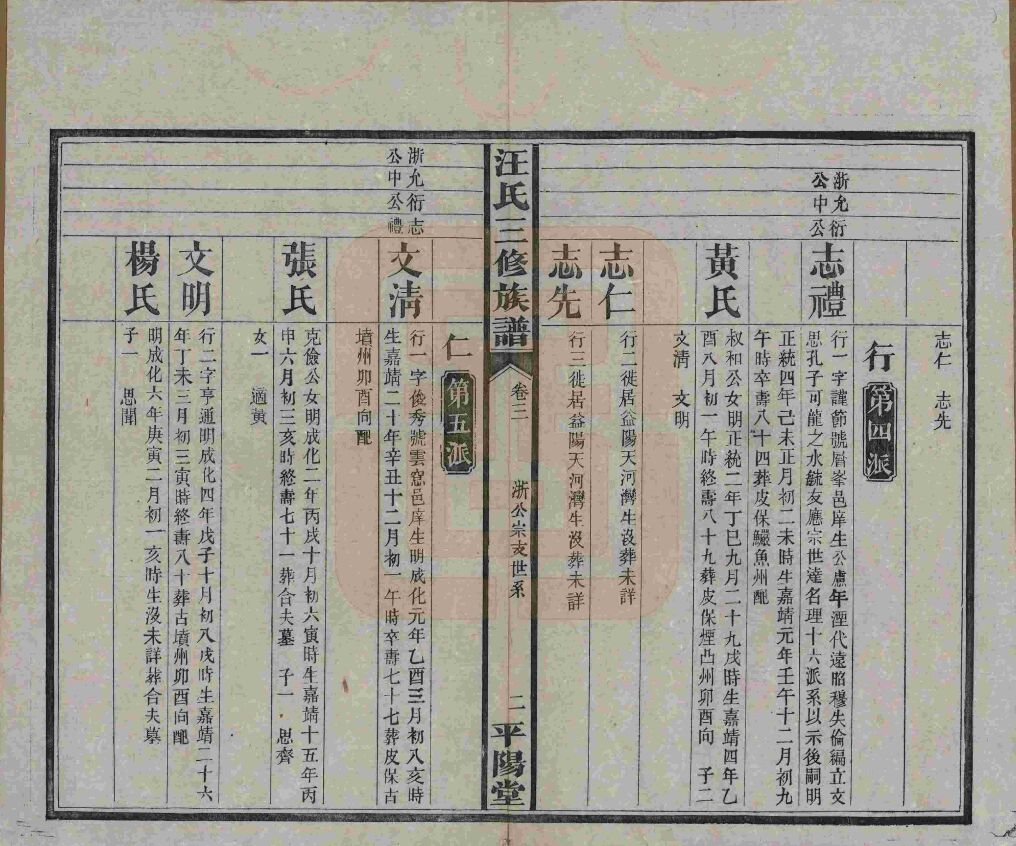 志仁 志先
行 第四派
浙允衍
公中公
志禮
行一字謹節號層峯邑庠生公慮年湮代遠昭穆失倫編立文
思孔子可龍之水毓友應宗世達名理十六派系以示後嗣明
正統四年己未正月初二未時生嘉靖元年壬午十二月初九
午時卒壽八十四葬皮保鱺魚州配
黃氏
叔和公女明正統二年丁巳九月二十九戌時生嘉靖四年乙
酉八月初一午時終壽八十九葬皮保煙凸州卯酉向 子二
文清 文明
志仁
行二徙居益陽天河灣生沒葬未詳
志先
行三徙居益陽天河灣生沒葬未詳
汪氏三修族譜
卷三
浙公宗支世系
二
平陽堂
仁 第五派
浙允衍志
公中公禮
文清
行一字俊秀號雲窓邑庠生明成化元年乙酉三月初八亥時
生嘉靖二十年辛丑十二月初一午時卒壽七十七葬皮保古
墳州卯酉向配
張氏
克儉公女明成化二年丙戌十月初六寅時生嘉靖十五年丙
申六月初三亥時終壽七十一葬合夫墓 子一 思齊
女一 適黃
文明
行二字亨通明成化四年戊子十月初八戌時生嘉靖二十六
年丁未三月初三寅時終壽八十葬古墳州卯酉向配
楊氏
明成化六年庚寅二月初一亥時生沒未詳葬合夫墓
子一 思聞